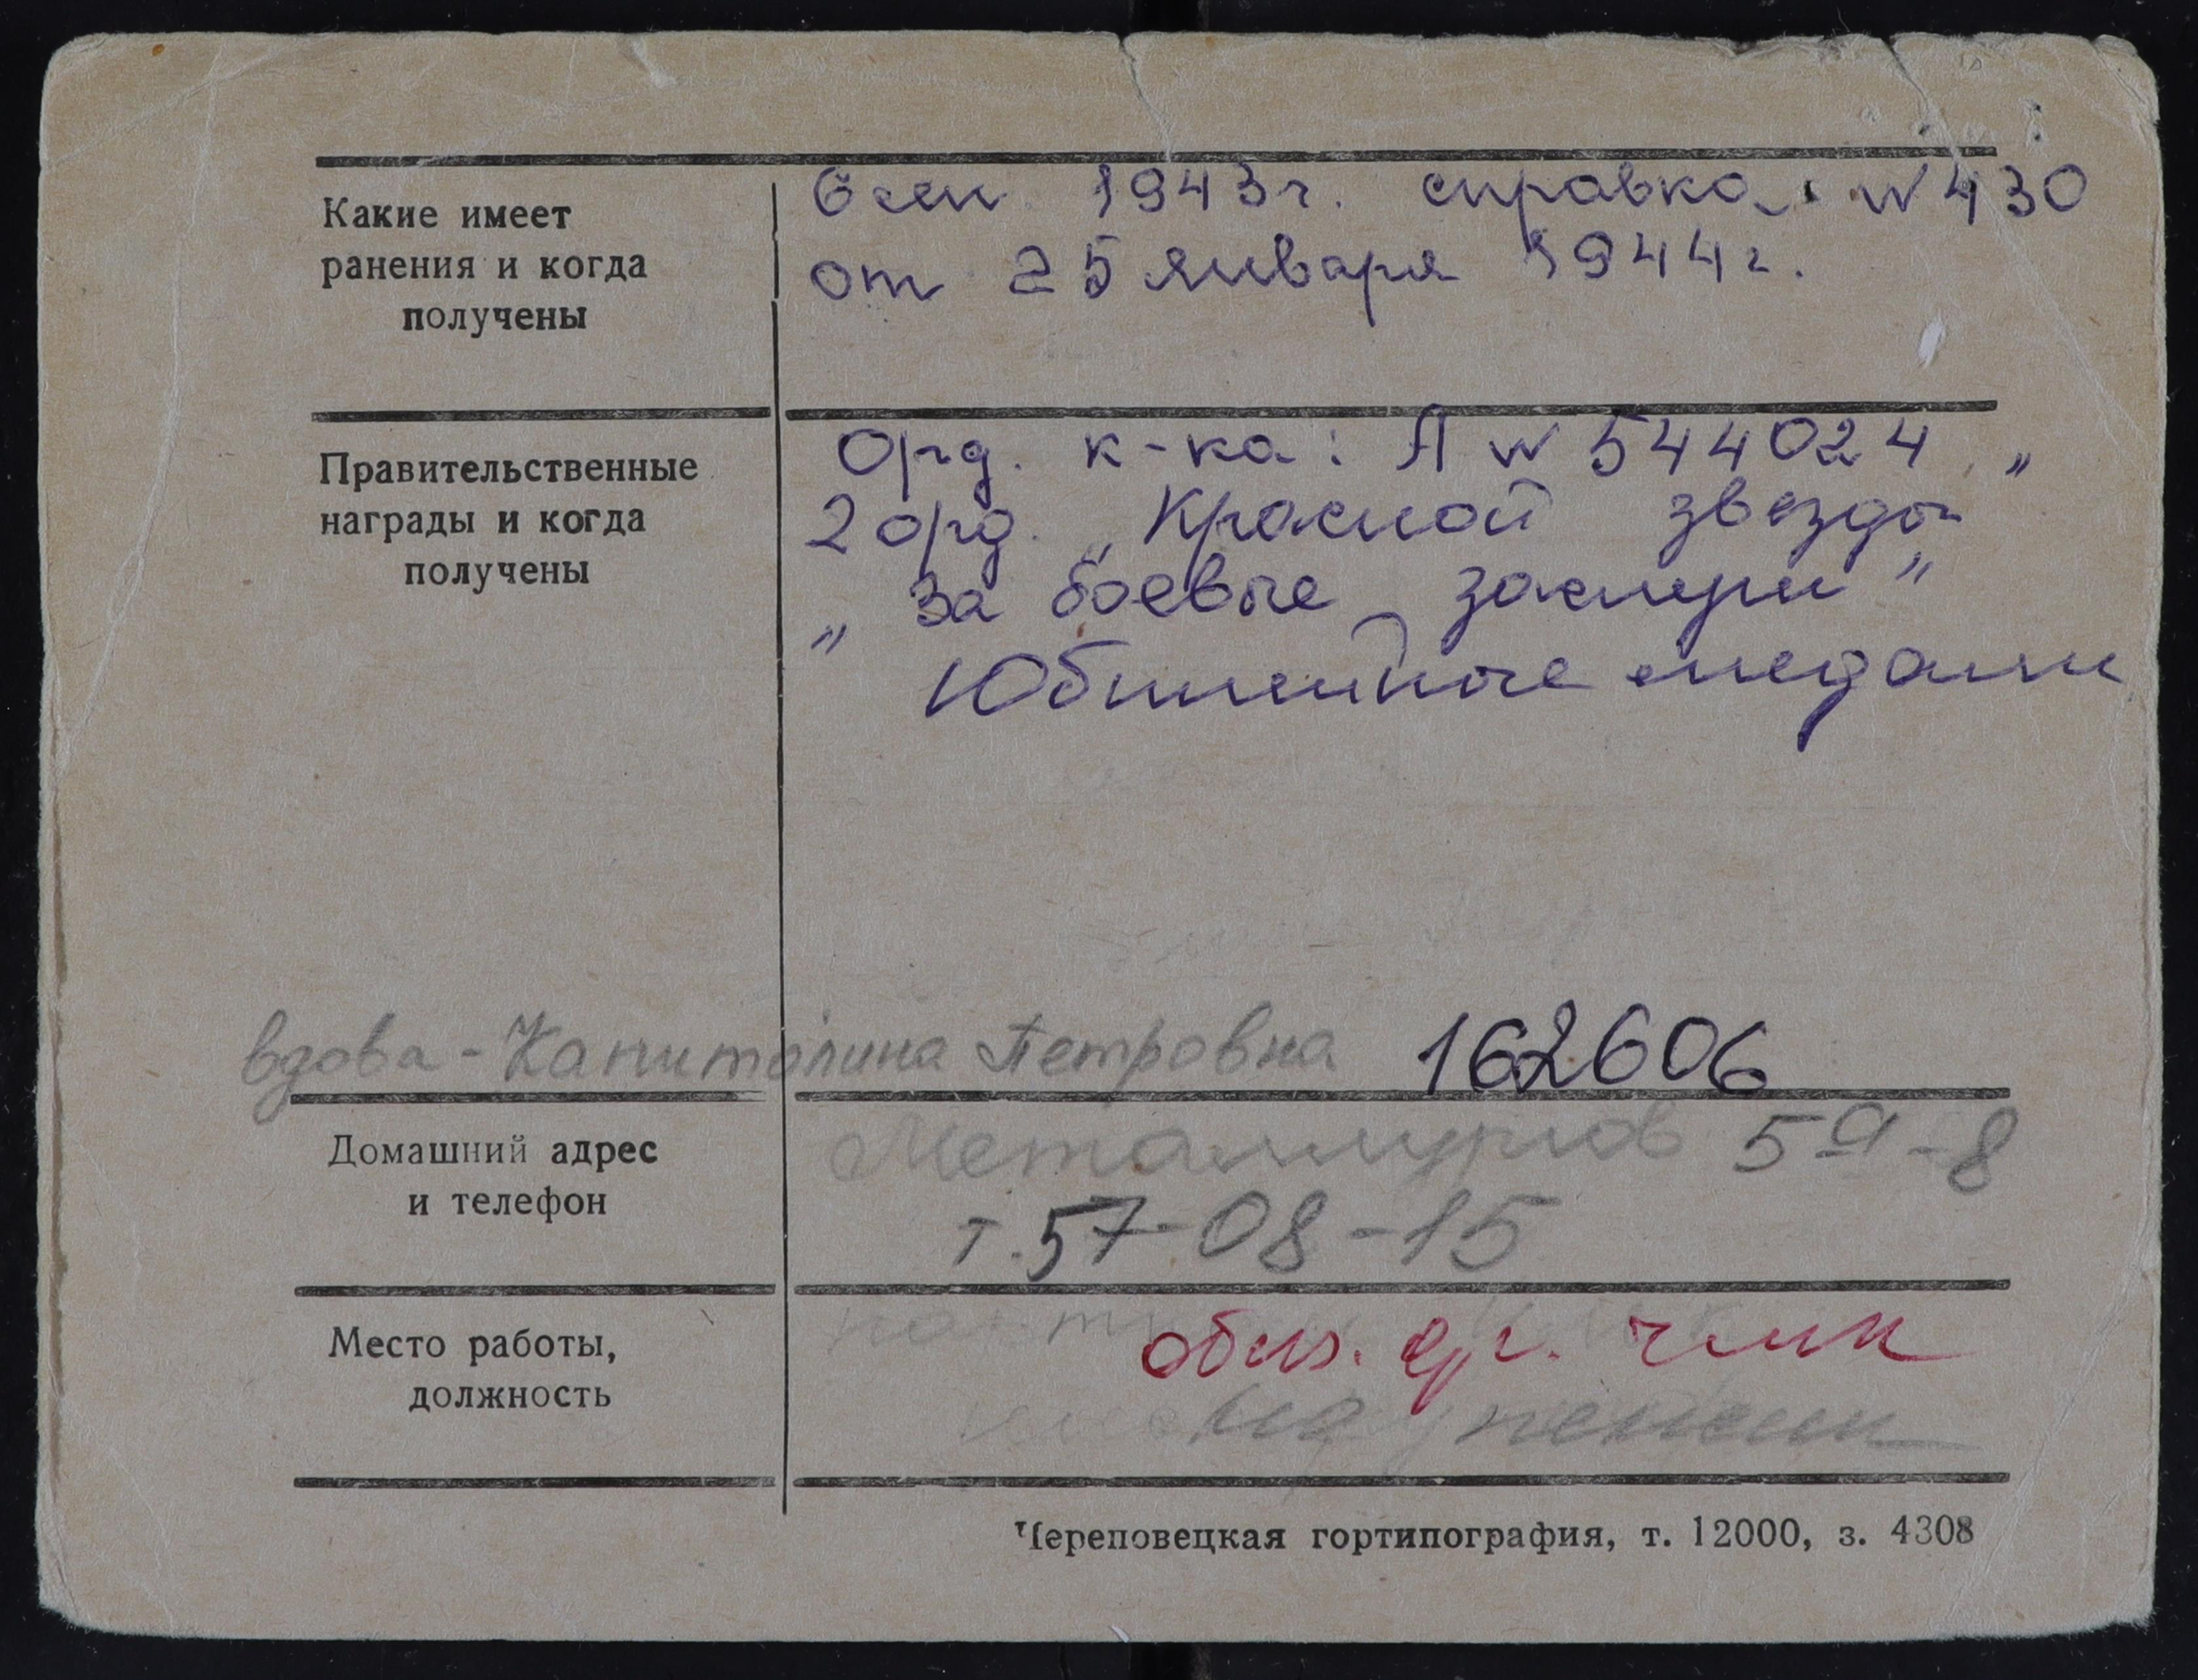 Какие имеет
ранения и когда
получены
1943г. справка N 430
от 25 января 1944г.
Правительственные
награды и когда
получены
Орд. к-ка: А N 544024
2 орд. „Красной звезды"
„За боевые заслуги"
Юбилейные медали
вдова - Капиталина Петровна 162606
Домашний адрес
и телефон
Металлургов 5а-8
т. 57-08-15
Место работы,
должность
на пенсии
Череповецкая гортипография, т. 12000, з. 4308